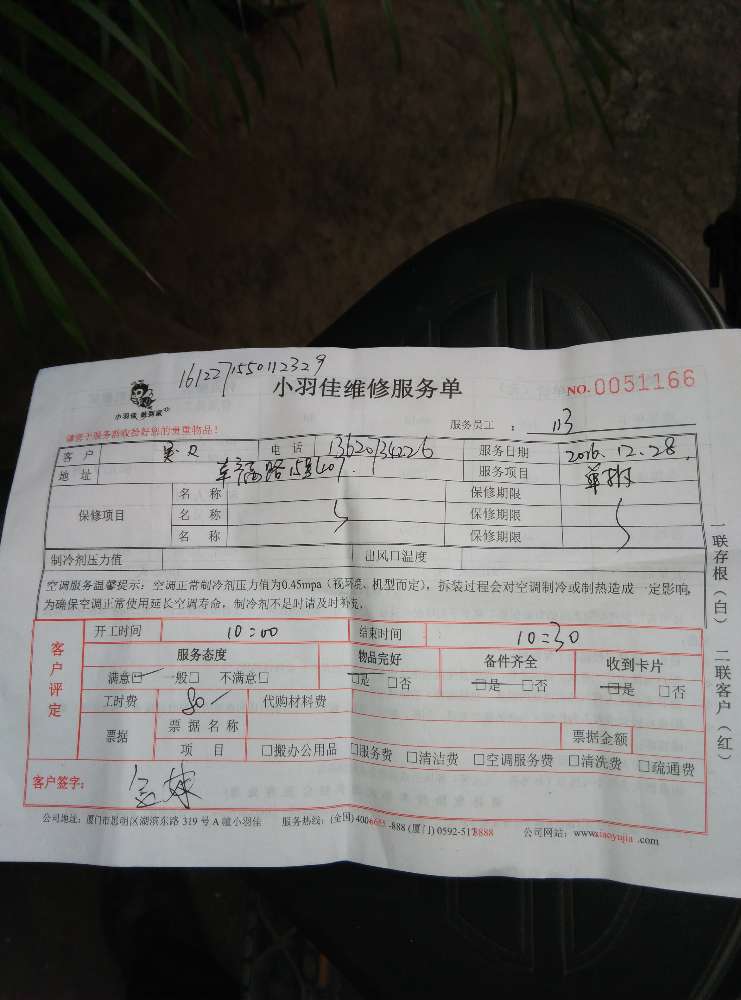 1612271550112329
小羽佳维修服务单
NO.0051166
小羽佳 教到家
请客户服务前收拾好您的贵重物品！
服务员工 ： 113
客户 电话 13620134226 服务日期 2016.12.28.
地址 服务项目 单拆
保修项目 名称 保修期限
名称 保修期限
名称 保修期限
制冷剂压力值 出风口温度
空调服务温馨提示：空调正常制冷剂压力值为0.45mpa（视环境、机型而定），拆装过程会对空调制冷或制热造成一定影响，
为确保空调正常使用延长空调寿命，制冷剂不足时请及时补充。
客户评定
开工时间 10:00 结束时间 10:30
服务态度 物品完好 备件齐全 收到卡片
满意□ 一般□ 不满意□ □是 □否 □是 □否 □是 □否
工时费 80 代购材料费
票据 票据名称 票据金额
项目 □搬办公用品 □服务费 □清洁费 □空调服务费 □清洗费 □疏通费
客户签字：
公司地址：厦门市思明区湖滨东路 319 号 A 幢小羽佳 服务热线：(全国) 4006665-888 (厦门) 0592-5178888 公司网站：www.xiaoyujia.com
一联存根（白） 二联客户（红）